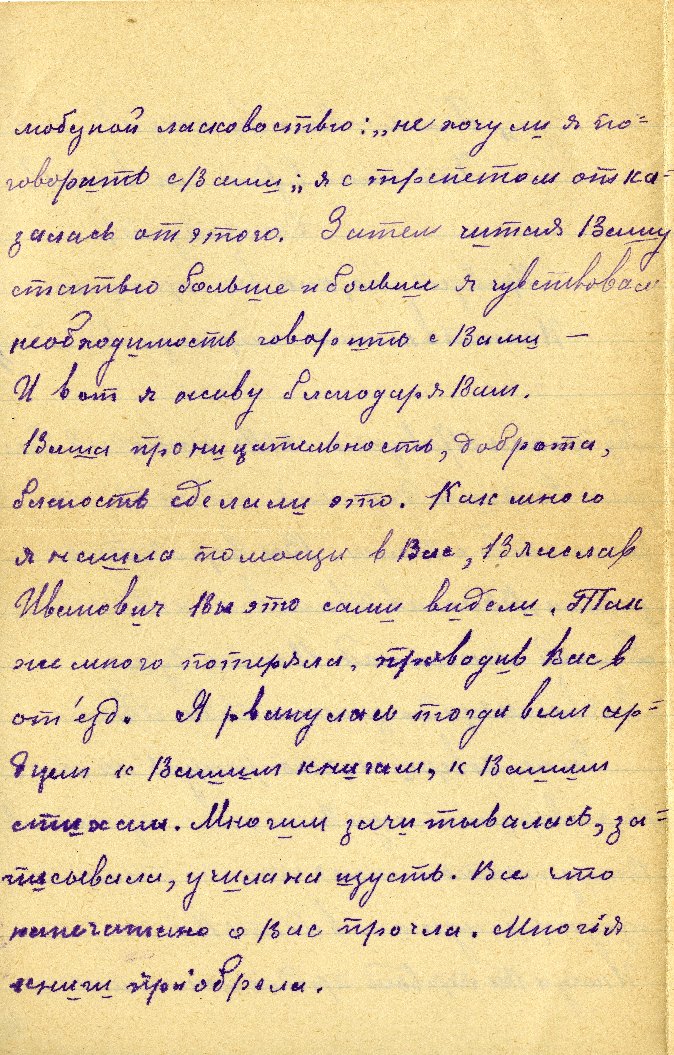 любезной ласковостью: „не хочу ли я по=
говорить с Вами„ я с трепетом отка-
залась от этого. Затем читая Вашу
статью больше и больше я чувствовала
необходимость говорить с Вами —
И вот я живу благодаря Вам.
Ваша проницательность, доброта,
благость сделали это. Как много
я нашла помощи в Вас, Вячеслав
Иванович Вы это сами видели. Так
же много потеряла, проводив Вас в
от'езд. Я рванулась тогда всем сер=
дцем к Вашим книгам, к Вашим
стихам. Многим зачитывалась, за=
писывала, училана изусть. Все что
напечатано о Вас прочла. Многія
книги приобрела.